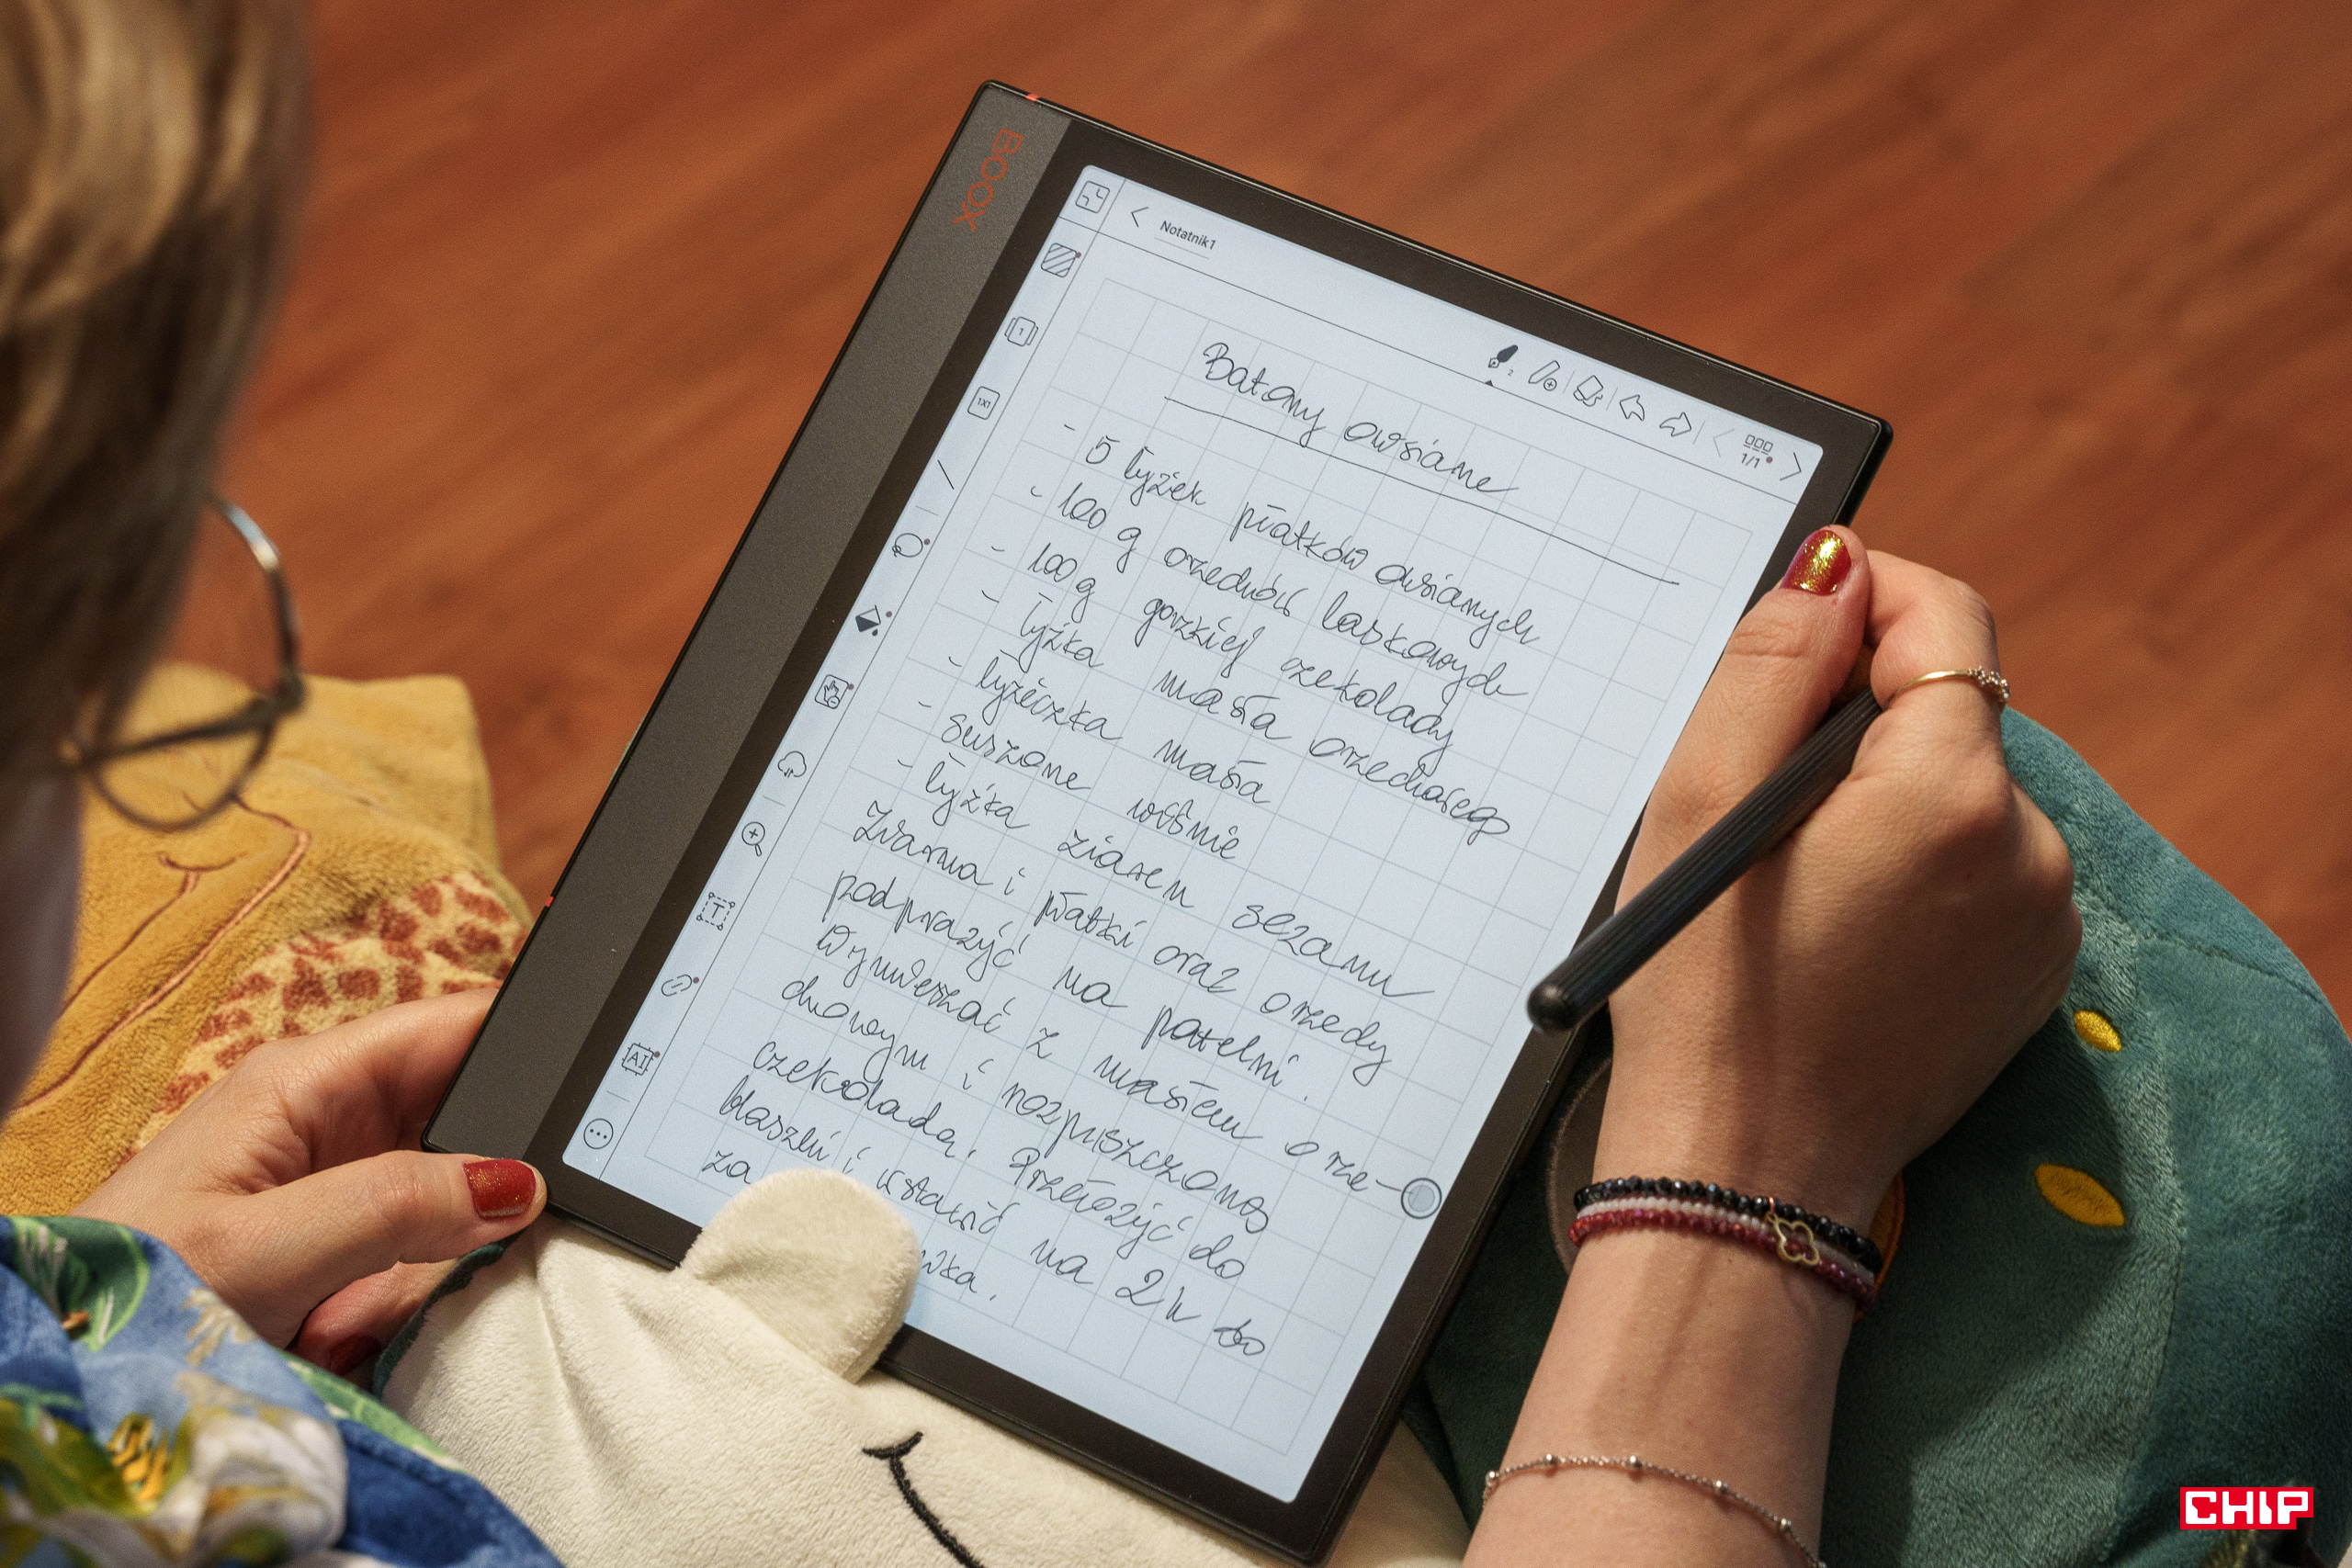 BOOX
Notatnik1
1/1
1
1X1
T
AI
Batony owsiane
- 5 łyżek płatków owsianych
- 100 g orzechów laskowych
- 100 g gorzkiej czekolady
- łyżka masła orzechowego
- łyżeczka masła
- suszone wiśnie
- łyżka ziaren sezamu
Ziarna i płatki oraz orzechy
podprażyć na patelni.
Wymieszać z masłem orze-
chowym i rozpuszczoną
czekoladą. Przełożyć do
blaszki i wstawić na 2h do
za wka.
CHIP